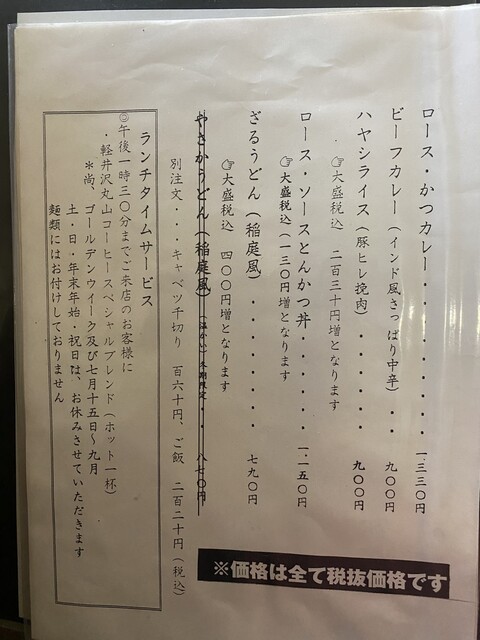 ロース・かつカレー・・・・・・・一、三三〇円
ビーフカレー(インド風さっぱり中辛)・・九〇〇円
ハヤシライス(豚ヒレ挽肉)・・・・・九〇〇円
☞大盛税込 二百三十円増となります
ロース・ソースとんかつ丼・・・・一、一五〇円
☞大盛税込(一三〇円増となります
ざるうどん(稲庭風)・・・・・・・七九〇円
☞大盛税込 四〇〇円増となります
やさかうどん(稲庭風)(温かい)冬期限定・・八七〇円
別注文・・・キャベツ千切り 百六十円、ご飯 二百二十円(税込)
※価格は全て税抜価格です
ランチタイムサービス
◎午後一時三〇分までご来店のお客様に
・軽井沢丸山コーヒースペシャルブレンド(ホット一杯)
*尚、ゴールデンウィーク及び七月十五日～九月
土・日・年末年始・祝日は、お休みさせていただきます
麺類にはお付けしておりません